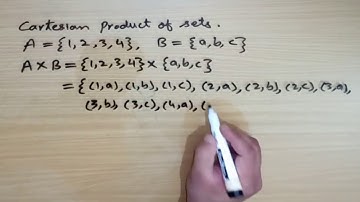 Cartesian Product of sets.
A = {1,2,3,4}, B = {a,b,c}
A×B = {1,2,3,4} × {a,b,c}
= {(1,a), (1,b), (1,c), (2,a), (2,b), (2,c), (3,a),
(3,b) (3,c), (4,a), (